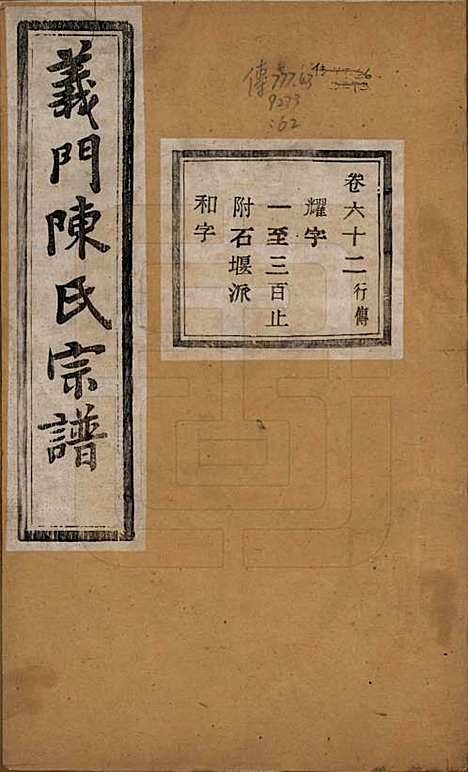 義門陳氏宗譜
卷六十二 行傳
耀字
一至三百止
附石堰派
和字
傳
9273
:62